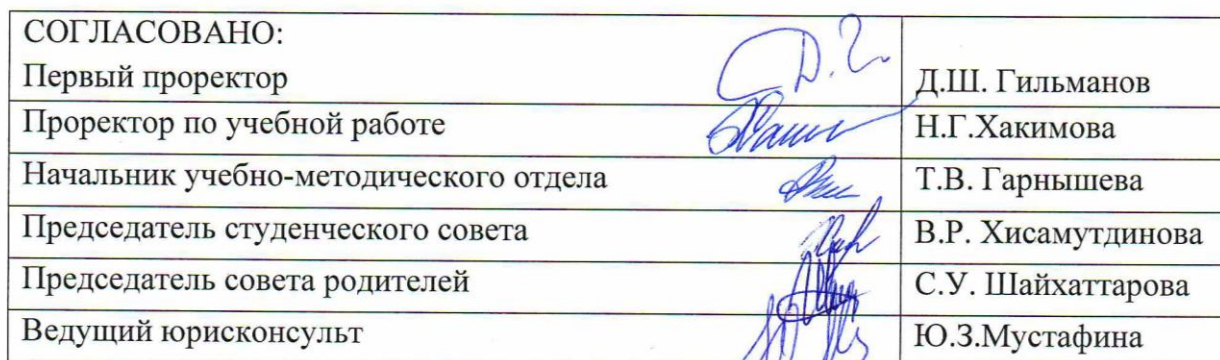 СОГЛАСОВАНО:
Первый проректор Д.Ш. Гильманов
Проректор по учебной работе Н.Г.Хакимова
Начальник учебно-методического отдела Т.В. Гарнышева
Председатель студенческого совета В.Р. Хисамутдинова
Председатель совета родителей С.У. Шайхаттарова
Ведущий юрисконсульт Ю.З.Мустафина